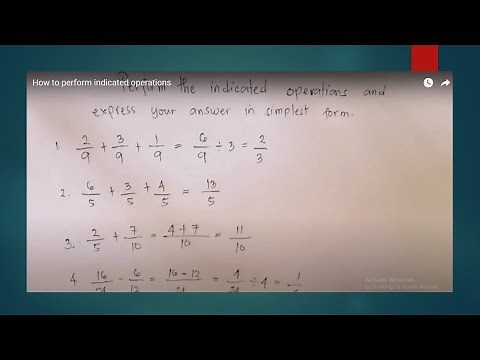 How to perform indicated operations
Perform the indicated operations and
express your answer in simplest form.
1. 2/9 + 3/9 + 1/9 = 6/9 ÷ 3 = 2/3
2. 6/5 + 3/5 + 4/5 = 13/5
3. 2/5 + 7/10 = 4+7/10 = 11/10
4. 16/24 - 6/12 = 16-12/24 = 4/24 ÷ 4 = 1/
Activate Windows